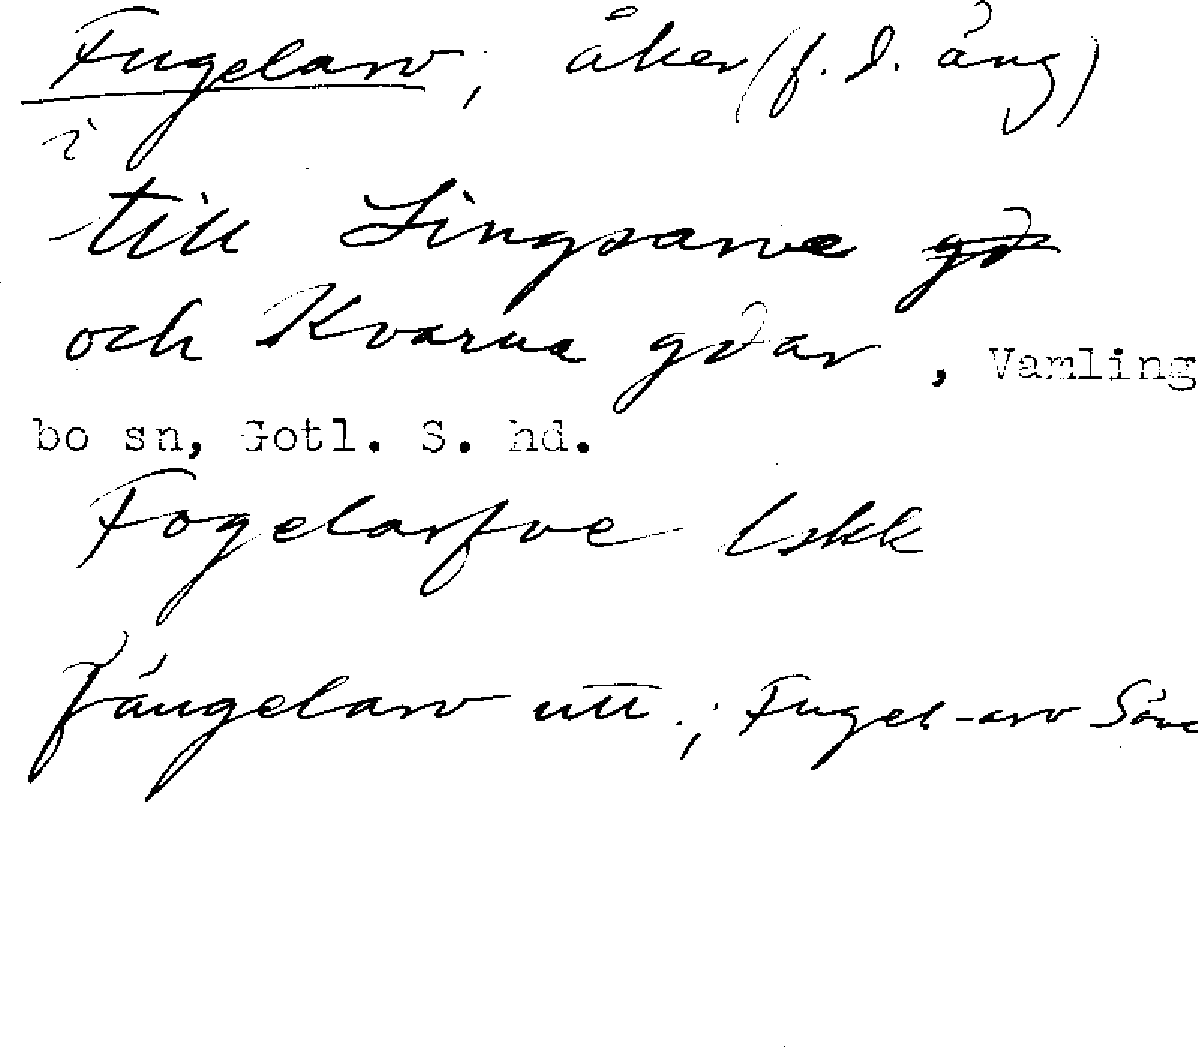 Fugelarv, åker (f. d. äng)
i
till Lingsarve gd
och Kvarna gdar, Vamling
bo sn, Gotl. S. hd.
Fogelarfve Lskk
fáugelarv utt.; Fugel-arv Säve